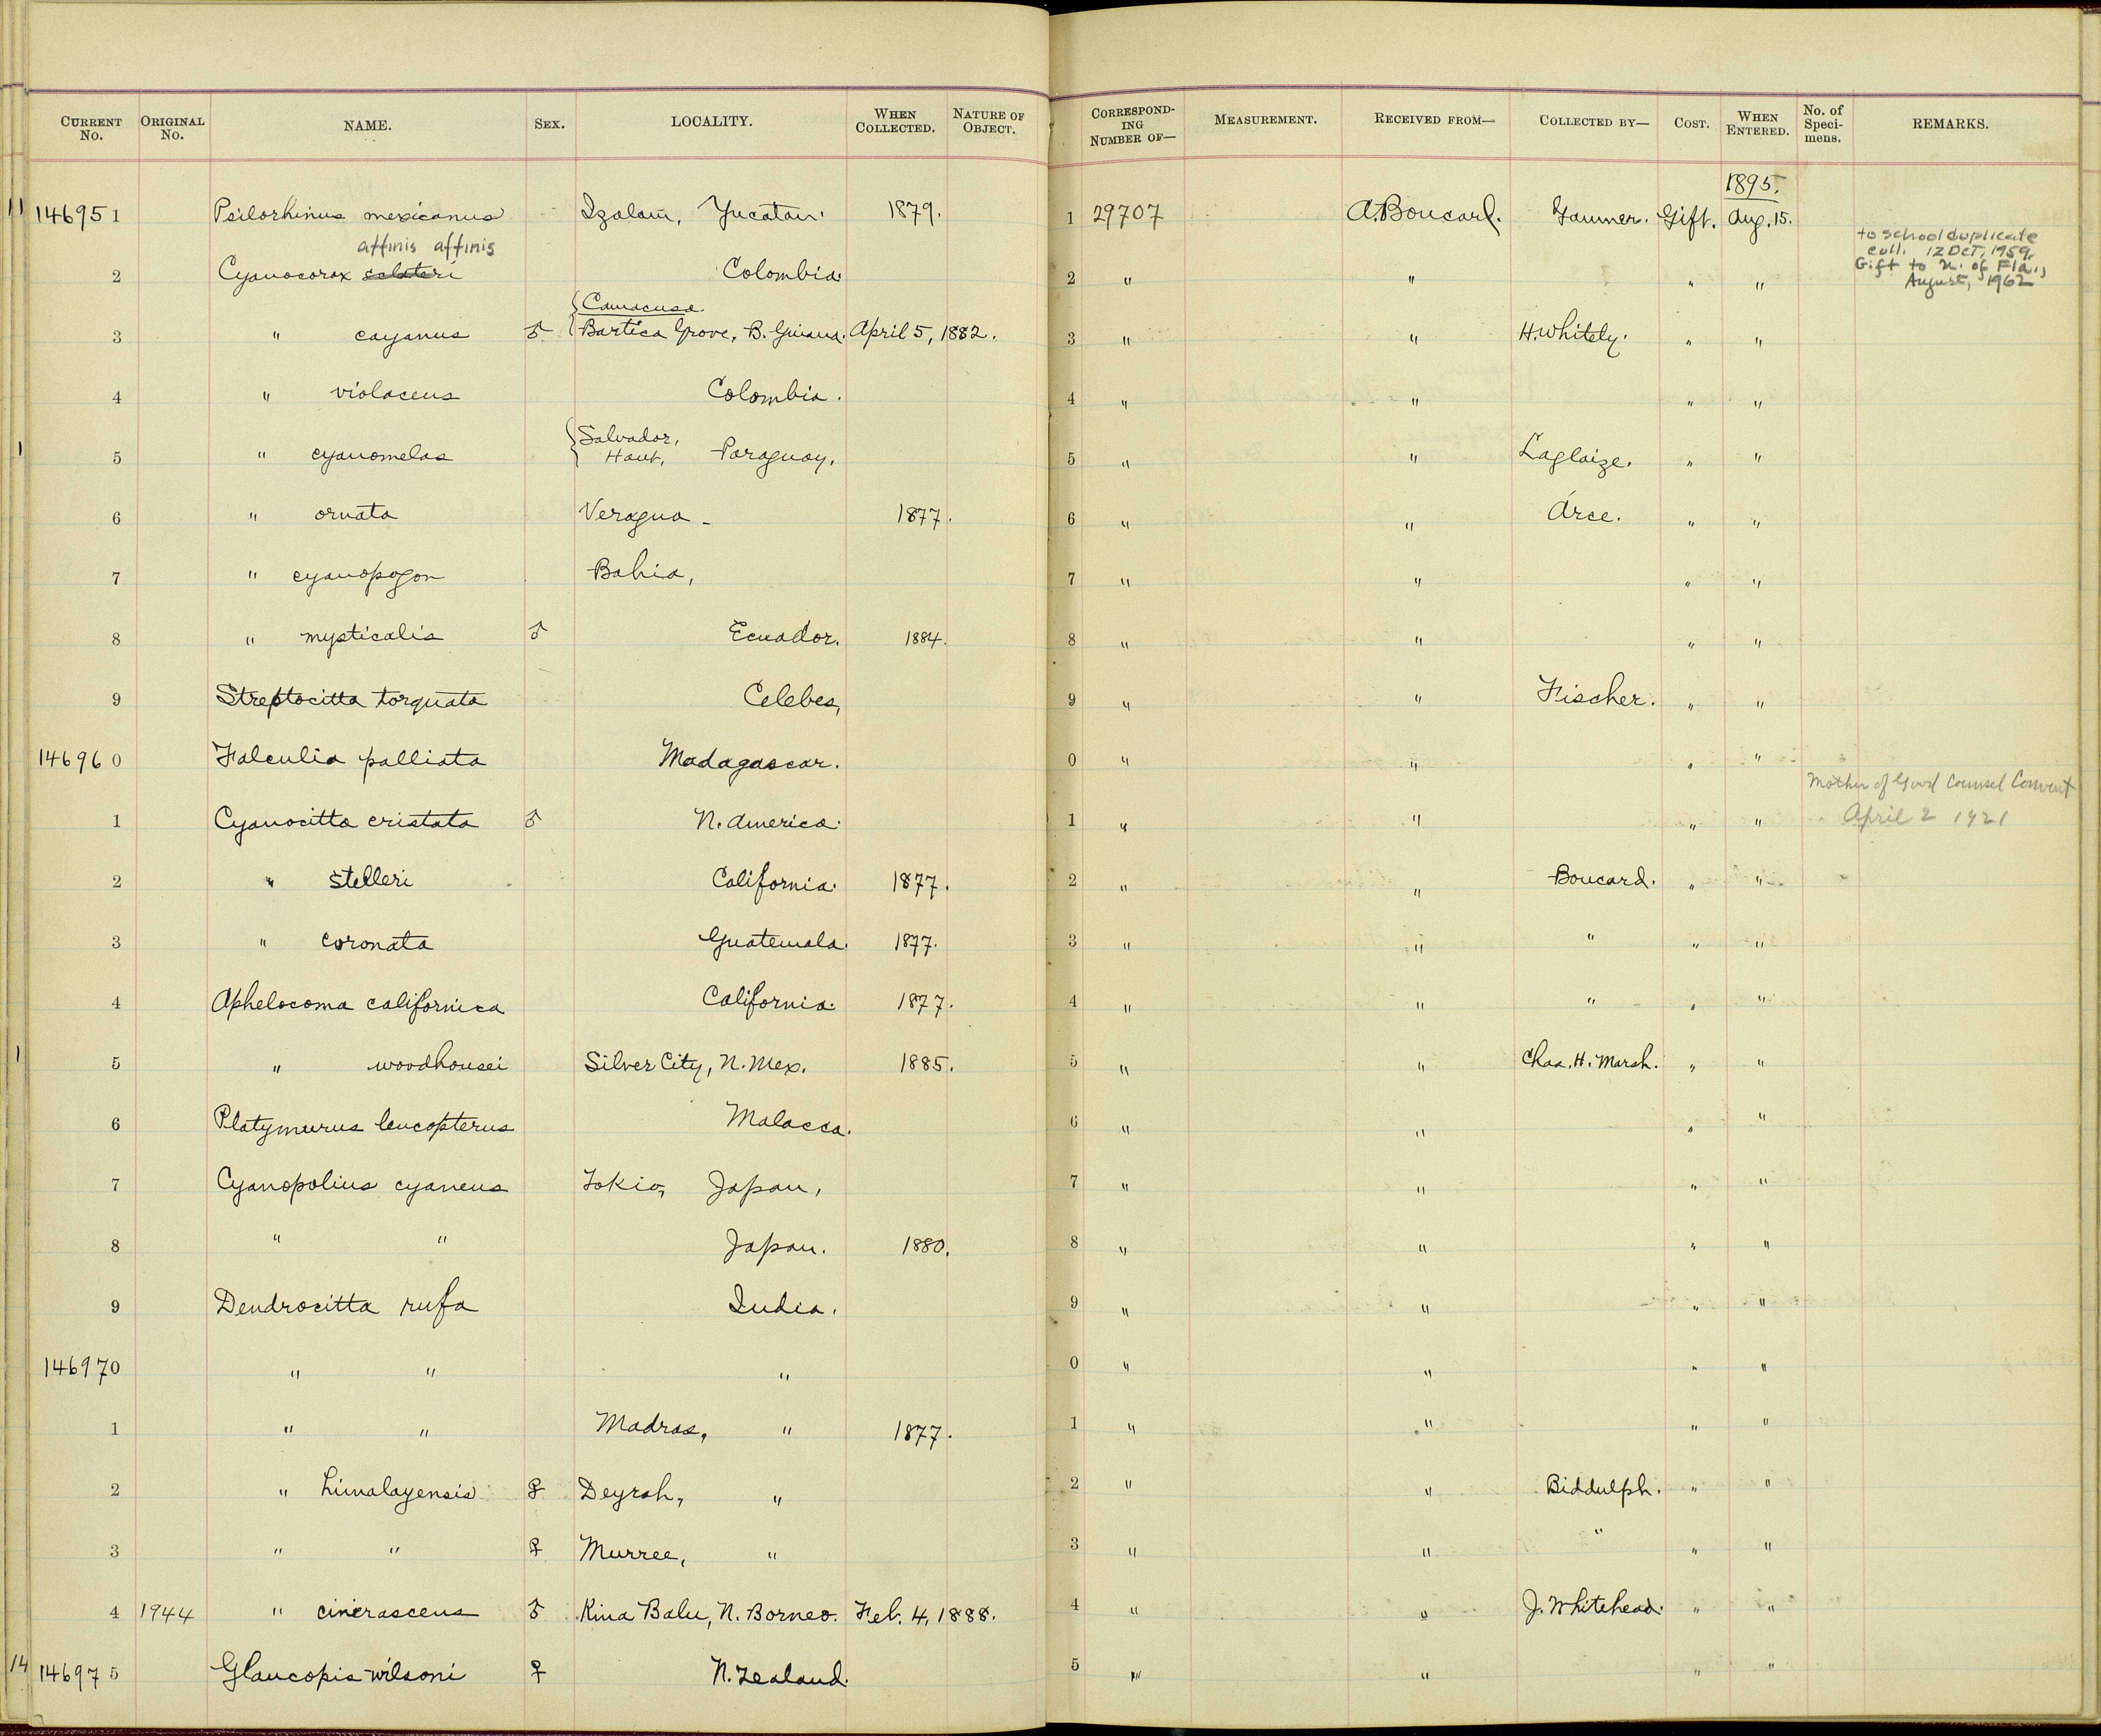 CURRENT No. ORIGINAL No. NAME. SEX. LOCALITY. WHEN COLLECTED. NATURE OF OBJECT. CORRESPONDING NUMBER OF— MEASUREMENT. RECEIVED FROM— COLLECTED BY— COST. WHEN ENTERED. No. of Specimens. REMARKS.
1895.
11 146951 Psilorhinus mexicanus Izalam, Yucatan. 1879. 1 29707 A. Boucard. Gaumer. Gift. Aug. 15.
affinis affinis
2 Cyanocorax sclateri Colombia. 2 " " " "
to school duplicate
coll. 12 OCT, 1959,
Gift to U. of Fla.,
August, 1962
{ Camacusa.
3 " cayanus ♂ Bartica Grove, B. Guiana. April 5, 1882. 3 " " H. Whitely. " "
4 " violaceus Colombia. 4 " " " "
1 5 " cyanomelas { Salvador, Haut, Paraguay. 5 " " Laglaize. " "
6 " ornata Veragua - 1877. 6 " " Arce. " "
7 " cyanopogon Bahia, 7 " " " "
8 " mysticalis ♂ Ecuador. 1884. 8 " " " "
9 Streptocitta torquata Celebes, 9 " " Fischer. " "
146960 Falculia palliata Madagascar. 0 " " " "
Mother of Good Counsel Convent
1 Cyanocitta cristata ♂ N. America. 1 " " " " April 2 1921
2 " stelleri California. 1877. 2 " " Boucard. " "
3 " coronata Guatemala. 1877. 3 " " " " "
4 Aphelocoma californica California. 1877. 4 " " " " "
1 5 " woodhousei Silver City, N. Mex. 1885. 5 " " Chas. H. Marsh. " "
6 Platymurus leucopterus Malacca. 6 " " " "
7 Cyanopolius cyaneus Tokio, Japan, 7 " " " "
8 " " Japan. 1880. 8 " " " "
9 Dendrocitta rufa India. 9 " " " "
146970 " " " 0 " " " "
1 " " Madras, " 1877. 1 " " " "
2 " himalayensis ♀ Deyrah, " 2 " " Biddulph. " "
3 " " ♀ Murree, " 3 " " " " "
4 1944 " cinerascens ♂ Kina Balu, N. Borneo. Feb. 4, 1888. 4 " " J. Whitehead. " "
14 146975 Glaucopis wilsoni ♀ N. Zealand. 5 " " " "